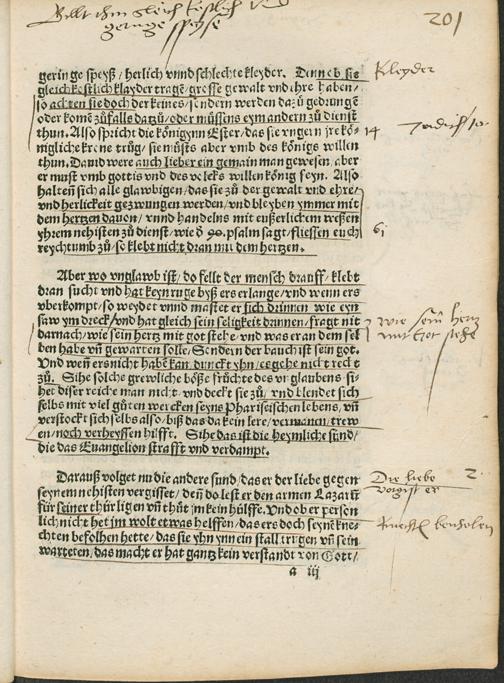 201
geringe speyß / herlich vnnd schlechte kleyder. Denn ob sie
gleich kostlich klayder tragẽ / grosse gewalt vnd ehre haben /
so achten sie doch der keines / sondern werden dazů gedrungẽ
oder komẽ zůfalls dartzů / oder můssens eym andern zů dienst
thun. Also spricht die königynn Ester / das sie vngern jre kö-
nigliche krone trüg / sie můsts aber vmb des königs willen
thun. Dauid were auch lieber ein gemain man gewesen / aber
er must vmb gottis vnd des volcks willen könig seyn. Also
halten sich alle glawbigen / das sie zů der gewalt vnd ehre /
vnd herlickeit gezwungen werden / vnd bleyben ymmer mit
dem hertzen dauon / vnnd handelns mit eußerlichem weßen
yhrem nehisten zů dienst / wie d psalm sagt / fliessen euch
reychtumb zů / so klebt nicht dran mit dem hertzen.
Kleyder
14
Aber wo vnglawb ist / do fellt der mensch drauff / klebt
dran sucht vnd hat keyn ruge byß ers erlange / vnd wenn ers
vberkompt / so weydet vnnd mastet er sich drinnen wie eyn
saw ym dreck / vnd hat gleich sein seligkeit drinnen / fragt nit
darnach / wie sein hertz mit got stehe / vnd was er an dem sel
ben habe vñ gewarten solle / Sondern der bauch ist sein got.
Vnd weñ ers nicht haben kan dunckt yhn / es gehe nicht recht
zů. Sihe solche grewliche bőße früchte des vnglaubens si-
het diser reiche man nicht / vnd deckt sie zů / vnd blendet sich
selbs mit viel gůten wercken seyns Phariseischen lebens, vñ
verstockt sich selbs also / biß das da kein lere / vermanen / trew
en / noch verheyssen hilfft. Sihe das ist die heymliche sund /
die das Euangelion strafft vnd verdampt.
wie sein hertz
mit Got stehe
Darauß volget nu die ander sund / das er der liebe gegen
seynem nehisten vergisset / deñ do lest er den armen Lazarũ
für seiner thür ligen vñ thůt jm kein hülffe. Vnd ob er person
lich nicht het jm wolt etwas helffen / das ers doch seynẽ kne-
chten befolhen hette / das sie yhn ynn ein stall trugen vñ sein
warteten / das macht er hat gantz kein verstandt von Gott /
Die liebe
vergist er
2
a iij